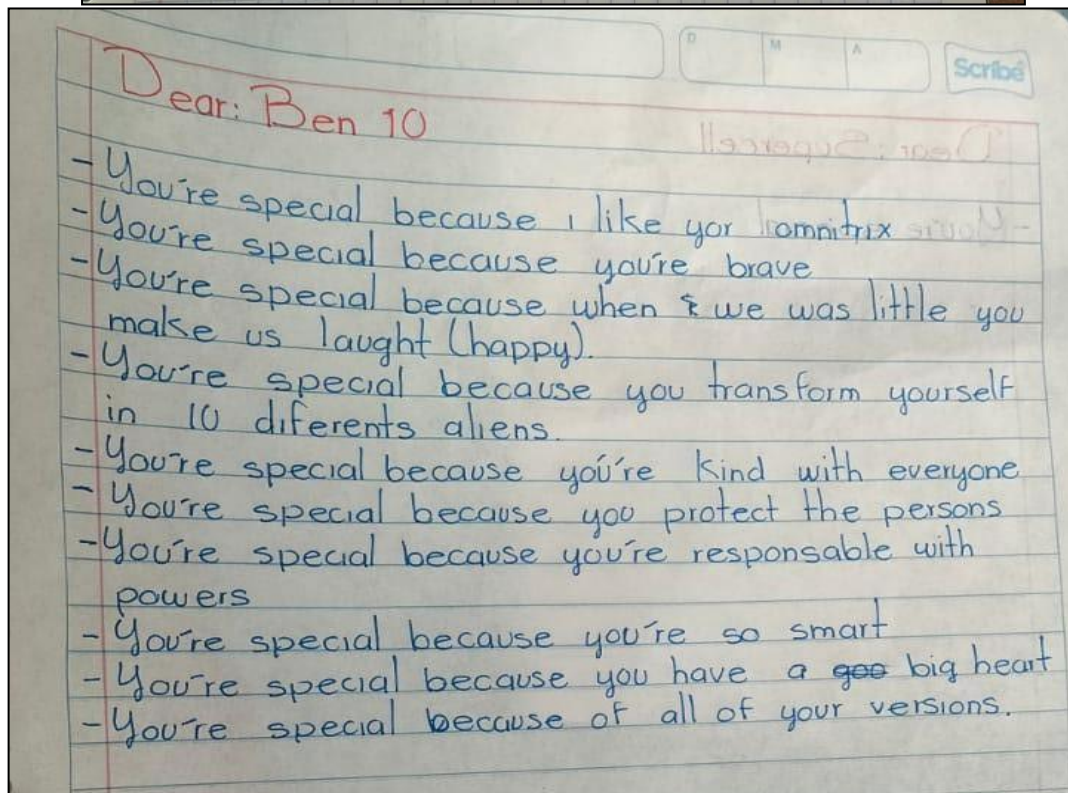 D M A
Scribe
Dear: Ben 10
- You're special because i like yor omnitrix
- You're special because you're brave
- You're special because when we was little you
make us laught (happy).
- You're special because you transform yourself
in 10 diferents aliens.
- You're special because you're kind with everyone
- You're special because you protect the persons
- You're special because you're responsable with
powers
- You're special because you're so smart
- You're special because you have a goo big heart
- You're special because of all of your versions.